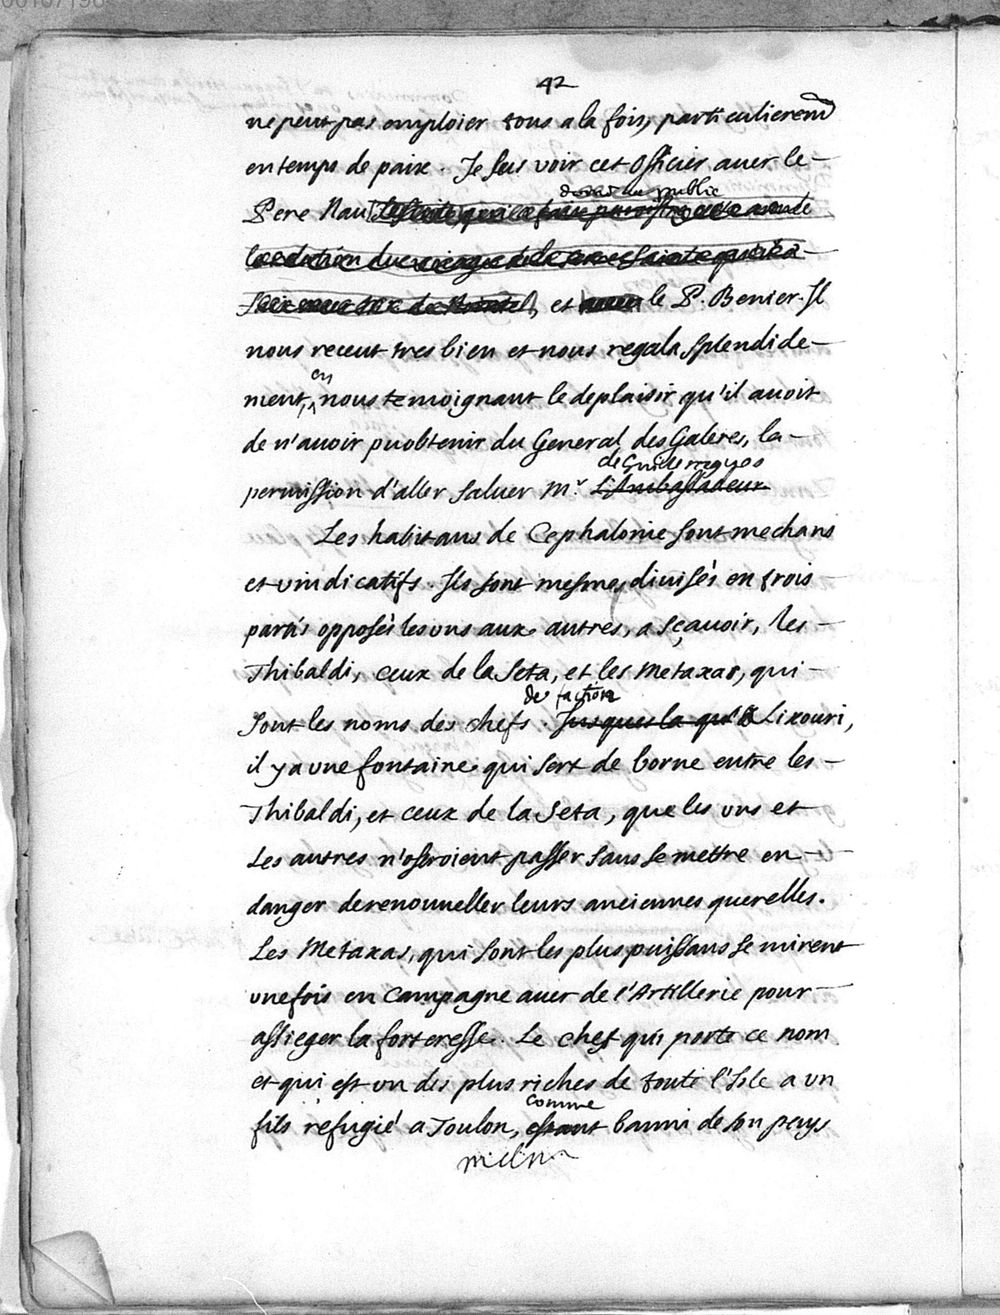 42
ne peut pas emploier tous a la fois, particulierem̃t
en temps de paix. Je fus voir cet Officier avec le
donné au public
Pere Nau Jesuite, qui a fait
la relation du voiage de la terre Sainte qu'il a
et avec le P. Benier. Il
nous receut tres bien et nous regala splendide-
en
ment, nous temoignant le deplaisir qu'il avoit
de n'avoir pu obtenir du General des Galeres, la
de Guilleragues
permission d'aller saluer Mr. L'Ambassadeur
Les habitans de Cephalonie sont mechans
et vindicatifs. Ils sont mesmes divisés en trois
partis opposés les uns aux autres, a sçavoir, les
Thibaldi, ceux de la Seta, et les Metaxas, qui
de faction
sont les noms des chefs. Jusques la qu'a Lixouri,
il y a une fontaine qui sert de borne entre les
Thibaldi, et ceux de la Seta, que les uns et
les autres n'oseroient passer sans se mettre en
danger de renouveller leurs anciennes querelles.
Les Metaxas, qui sont les plus puissans se mirent
une fois en Campagne avec de l'Artillerie pour
assieger la forteresse. Le chef qui porte ce nom
et qui est un des plus riches de toute l'Isle a un
comme
fils refugié a Toulon, estant banni de son pays